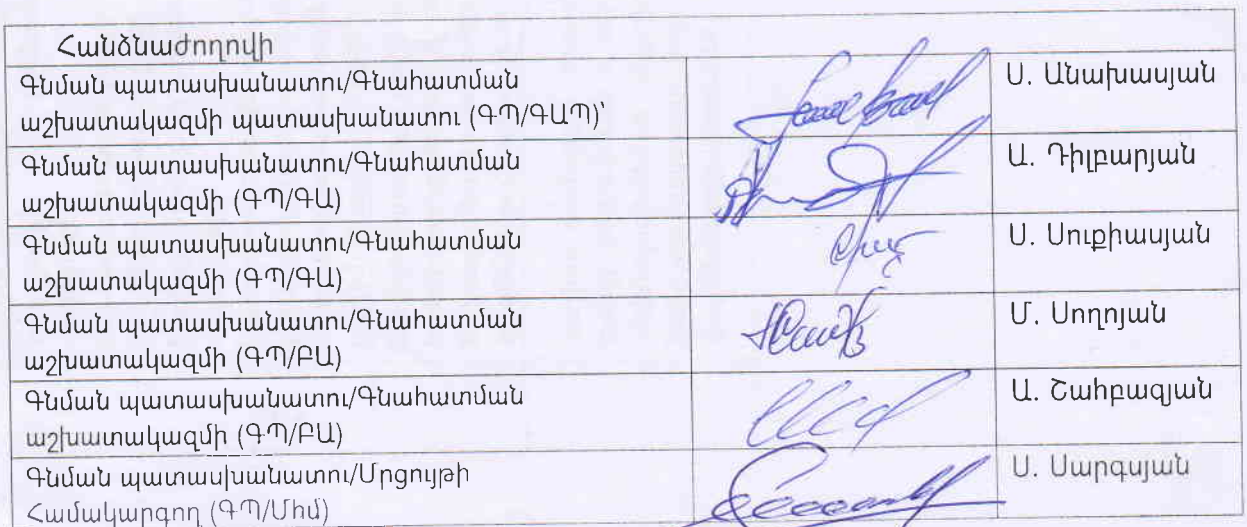 Հանձնաժողովի
Գնման պատասխանատու/Գնահատման
աշխատակազմի պատասխանատու (ԳՊ/ԳԱՊ)՝
Ս. Անախասյան
Գնման պատասխանատու/Գնահատման
աշխատակազմի (ԳՊ/ԳԱ)
Ա. Դիլբարյան
Գնման պատասխանատու/Գնահատման
աշխատակազմի (ԳՊ/ԳԱ)
Ս. Սուքիասյան
Գնման պատասխանատու/Գնահատման
աշխատակազմի (ԳՊ/ԲԱ)
Մ. Սողոյան
Գնման պատասխանատու/Գնահատման
աշխատակազմի (ԳՊ/ԲԱ)
Ա. Շահբազյան
Գնման պատասխանատու/Մրցույթի
Համակարգող (ԳՊ/Մհմ)
Ս. Սարգսյան